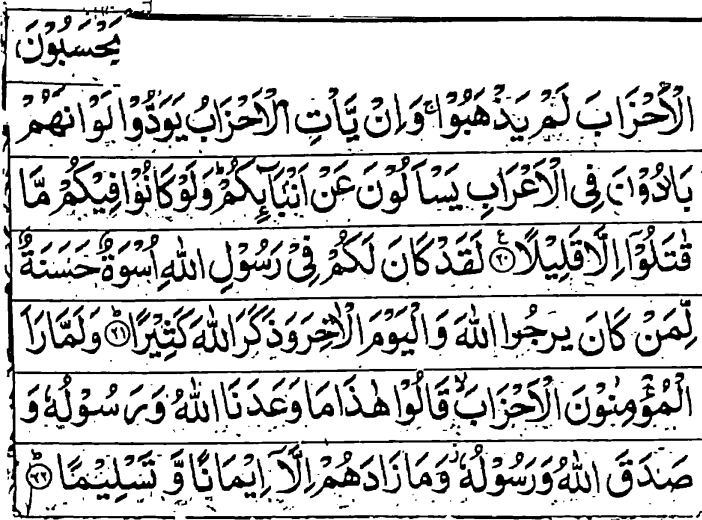 يَحْسَبُوْنَ
الْاَحْزَابَ لَمْ يَذْهَبُوْا ۚ وَاِنْ يَّاْتِ الْاَحْزَابُ يَوَدُّوْا لَوْ اَنَّهُمْ
بَادُوْنَ فِى الْاَعْرَابِ يَسْاَلُوْنَ عَنْ اَنْۢبَآئِكُمْ ؕ وَلَوْ كَانُوْا فِيْكُمْ مَّا
قٰتَلُوْۤا اِلَّا قَلِيْلًا ﴿۲۰﴾ لَقَدْ كَانَ لَكُمْ فِىْ رَسُوْلِ اللّٰهِ اُسْوَةٌ حَسَنَةٌ
لِّمَنْ كَانَ يَرْجُوا اللّٰهَ وَالْيَوْمَ الْاٰخِرَ وَذَكَرَ اللّٰهَ كَثِيْرًا ﴿۲۱﴾ وَلَمَّا رَاَ
الْمُؤْمِنُوْنَ الْاَحْزَابَ ۙ قَالُوْا هٰذَا مَا وَعَدَنَا اللّٰهُ وَرَسُوْلُهٗ وَ
صَدَقَ اللّٰهُ وَرَسُوْلُهٗ ؗ وَمَا زَادَهُمْ اِلَّاۤ اِيْمَانًا وَّ تَسْلِيْمًا ﴿۲۲﴾